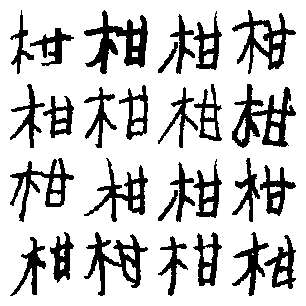 柑柑柑柑
柑柑柑柑
柑柑柑柑
柑柑柑柑